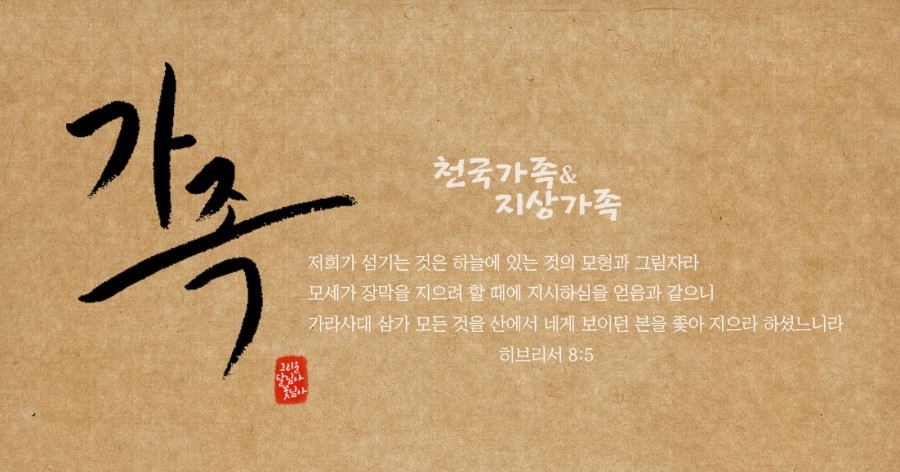 가족
천국가족&
지상가족
저희가 섬기는 것은 하늘에 있는 것의 모형과 그림자라
모세가 장막을 지으려 할 때에 지시하심을 얻음과 같으니
가라사대 삼가 모든 것을 산에서 네게 보이던 본을 좇아 지으라 하셨느니라
히브리서 8:5
그리운
달님아
꽃님아